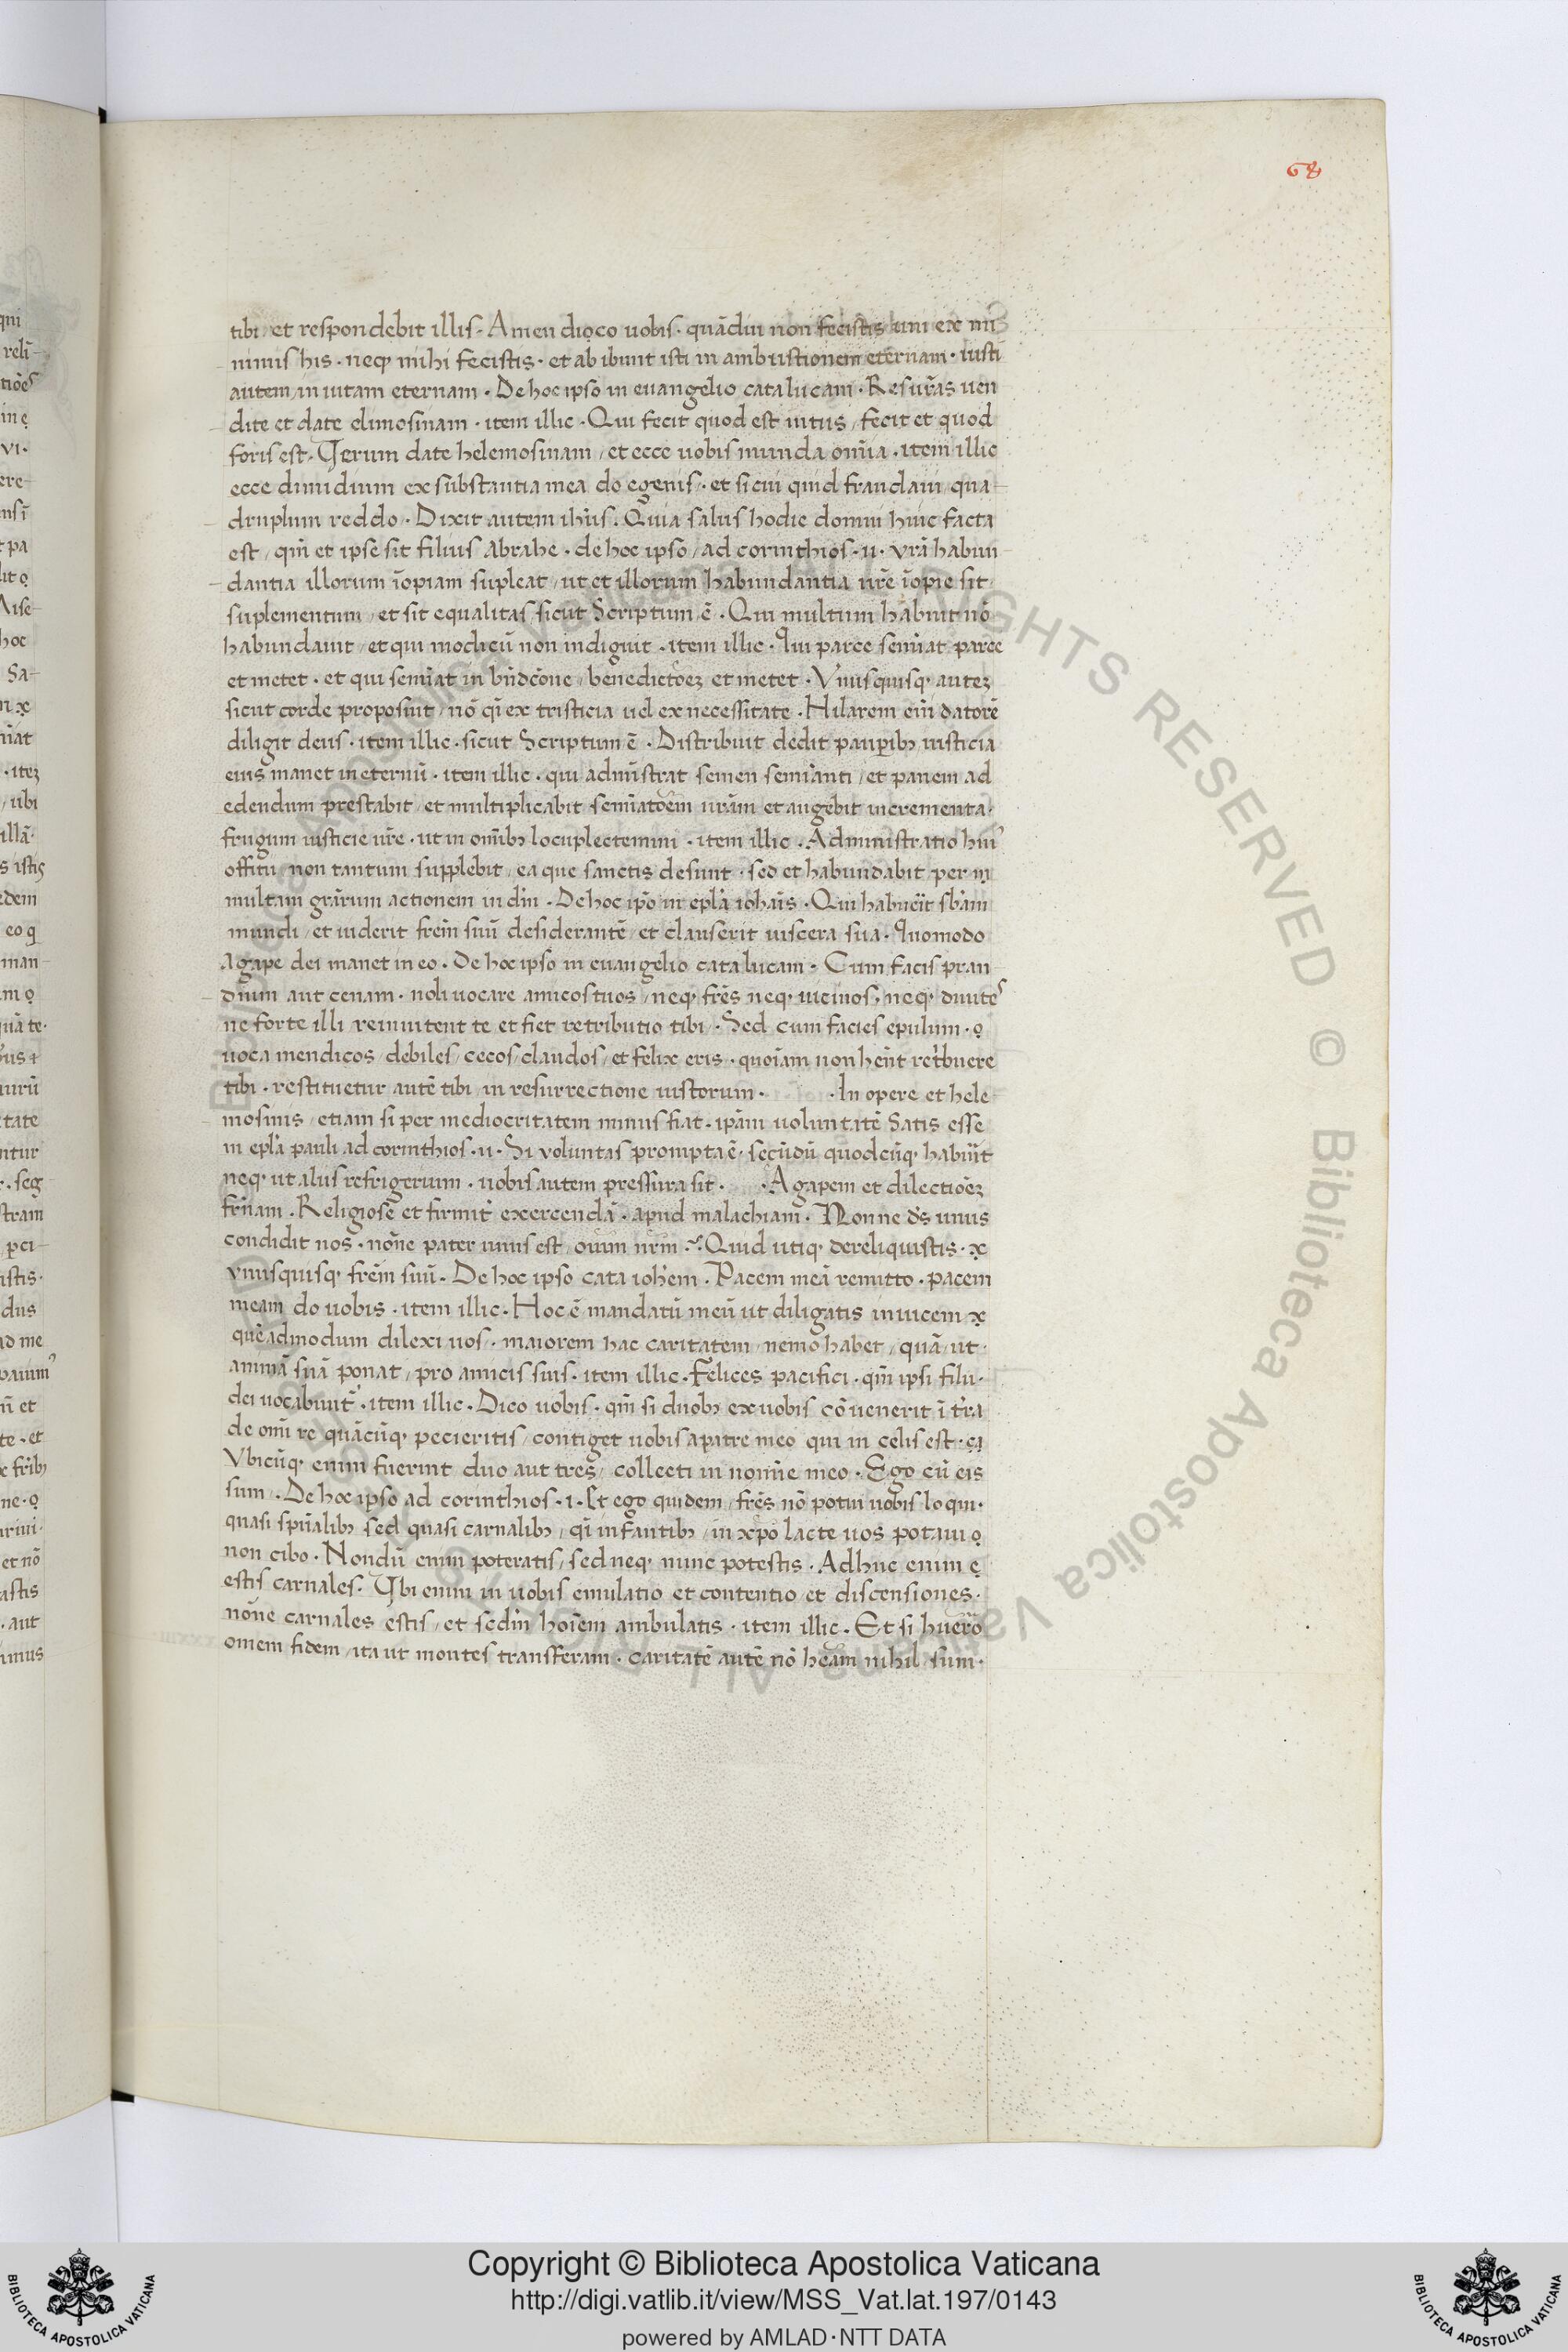 68
tibi et respondebit illis. Amen dico uobis. quādiu non fecistis uni ex mi
nimis his. neqꝫ mihi fecistis. et abibunt isti in ambustionem eternam. iusti
autem in uitam eternam. De hoc ipso in euangelio cata lucam. Res ur̄as uen
dite et date elimosinam. item illic. Qui fecit quod est intus / fecit et quod
foris est. Verum date helemosinam / et ecce uobis munda om̄ia. item illic
ecce dimidium ex substantia mea do egenis. et si cui quid fraudaui / qua
druplum reddo. Dixit autem ih̄us. Quia salus hodie domui huic facta
est / qm̄ et ipse sit filius Abrahe. de hoc ipso / ad corinthios. ii. vr̄a habun
dantia illorum īopiam supleat / ut et illorum habundantia ur̄e īopie sit
suplementum / et sit equalitas / sicut Scriptum ē. Qui multum habuit nō
habundauit / et qui modicū non indiguit. item illic. Qui parce semīat parce
et metet. et qui semīat in bn̄dcōne / benedictōeꝫ et metet. Vnusquisqꝫ auteꝫ
sicut corde proposuit / nō q̄i ex tristicia uel ex necessitate. Hilarem eīm datorē
diligit deus. item illic. sicut Scriptum ē. Distribuit dedit pauꝑibꝫ iusticia
eius manet in eternū. item illic. qui admīstrat semen semīanti / et panem ad
edendum prestabit / et multiplicabit semīatōem ur̄am et augebit incrementa.
frugum iusticie ur̄e. ut in om̄ibꝫ locuplectemini. item illic. Administratio huiꝰ
offitii / non tantum supplebit / ea que sanctis desunt. sed et habundabit per
multam gr̄arum actionem in dm̄. De hoc ip̄o in epl̄a ioh̄ais. Qui habuer̄it sb̄am
mundi / et uiderit frēm suū desiderantē / et clauserit uiscera sua. Quomodo
Agape dei manet in eo. De hoc ipso in euangelio cata lucam. Cum facis pran
dium aut cenam. noli uocare amicos tuos / neqꝫ frēs neqꝫ uicinos, neqꝫ diuites
ne forte illi reinuitent te et fiet retributio tibi. Sed cum facies epulum.
uoca mendicos / debiles / cecos / claudos / et felix eris. quoīam non hēnt ret̄buere
tibi. restituetur autē tibi / in resurrectione iustorum. In opere et hele
mosinis / etiam si per mediocritatem minus fiat. ip̄am uoluntatē Satis esse
in epl̄a pauli ad corinthios. ii. Si voluntas prompta ē. secūdū quodcūqꝫ habūit
neqꝫ ut aliis refrigerium. uobis autem pressura sit. Agapem et dilectiōeꝫ
fr̄nam. Religiose et firmit̄ exercendā. apud malachiam. Nonne ds̄ unus
condidit nos. nōne pater unus est / oīum nr̄m? Quid utiqꝫ dereliquistis.
vnusquisqꝫ frēm suū. De hoc ipso cata ioh̄em. Pacem meā remitto. pacem
meam do uobis. item illic. Hoc ē mandatū meū ut diligatis inuicem
quēadmodum dilexi uos. maiorem hac caritatem / nemo habet / quā / ut
animā suā ponat / pro amicis suis. item illic. Felices pacifici. qm̄ ipsi filii
dei uocabunt̄. item illic. Dico uobis. qm̄ si duobꝫ ex uobis cōuenerit ī tr̄a
de om̄i re quācūqꝫ pecieritis / contiget uobis a patre meo qui in celis est.
Vbicūqꝫ enim fuerint duo aut tres / collecti in noīne meo. Ego cū eis
sum. De hoc ipso ad corinthios. i. Et ego quidem / frēs nō potui uobis loqui.
quasi spūalibꝫ sed quasi carnalibꝫ / q̄i infantibꝫ / in xp̄o lacte uos potaui
non cibo. Nondū enim poteratis / sed neqꝫ nunc potestis. Adhuc enim
estis carnales. Vbi enim in uobis emulatio et contentio et discensiones.
nōne carnales estis / et sedm̄ hoīem ambulatis. item illic. Et si huero
omem fidem / ita ut montes transferam. caritatē autē nō hēam nihil sum.
Copyright © Biblioteca Apostolica Vaticana
http://digi.vatlib.it/view/MSS_Vat.lat.197/0143
powered by AMLAD·NTT DATA
BIBLIOTECA APOSTOLICA VATICANA
BIBLIOTECA APOSTOLICA VATICANA
ALL RIGHTS RESERVED © Biblioteca Apostolica Vaticana